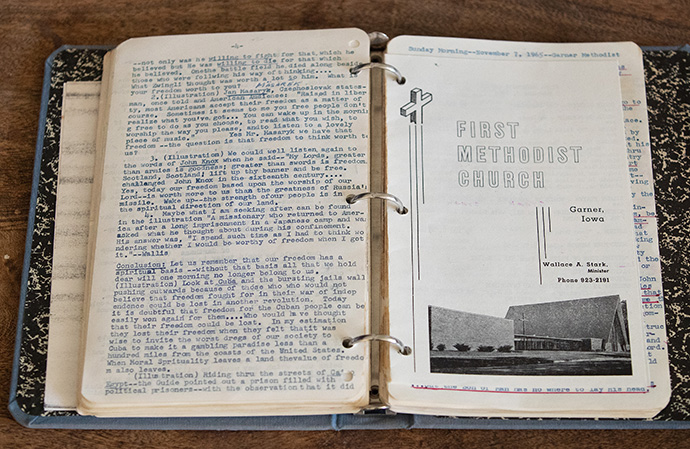 --not only was he willing to fight for that which he
believed but He was willing to die for that which
he believed. On the battle field he died along beside
those who were following his way of thinking.... What is
what Zwingli thought was worth a lot to him.
your freedom worth to you? MASARYK
2.(Illustration) Jan Masaryk, Czechoslovak states-
man, once told and American Audience: "Raised in liber
ty, most Americans accept their freedom as a matter of
course. Sometimes it seems to me you free people don't
realize what you've got... You can wake up in the mornin
g free to do as you choose, to read what you wish, to
worship the way you please, and to listen to a lovely
piece of music." Yes Mr. Masaryk we have that
freedom --the question is that freedom to think worth to
us?
3. (Illustration) We could well listen again to
the words of John Knox when he said--"My Lords, greater
than armies is goodness; greater than swords is freedom
Scotland, Scotland; lift up thy banner and be free.
challenged John Knox in the sixteenth century....
Yes, today our freedom based upon the worship of our
Lord--is worth more to us than the greatness of Russia's
missile. Wake up--the strength of our people is in
the spiritual direction of our land.
4. Maybe what I am seeking after can be found
in the illustration "A missionary who returned to Amer-
ica after a long imprisonment in a Japanese camp and was
asked what he thought about during his confinement.
His answer was, "I spend such time as I had to think wo
ndering whether I would be worthy of freedom when I got
it."--Wallis
Conclusion: Let us remember that our freedom has a
spiritual basis --without that basis all that we hold
dear will one morning no longer belong to us.
(Illustration) Look at Cuba and the bursting jails wall
pushing outwards because of those who who would not
believe that freedom fought for in their war of indep
endence could be lost in another revolution. Today
it is doubtful that freedom for the Cuban people can be
easily won again for them...Who would have thought
that their freedom could be lost. In my estimation
they lost their freedom when they felt that it was
wise to invite the worst dregs of our society to
Cuba to make it a gambling paradise less than a
hundred miles from the coasts of the United States.
When Moral Sprituality leaves a land the value of freedo
m also leaves.
(Illustration) Riding thru the streets of Ca
Egypt--the Guide pointed out a prison filled with
political prisoners--with the observation that it did
Sunday Morning--November 7, 1965--Garner Methodist
FIRST
METHODIST
CHURCH
Garner,
Iowa
Wallace A. Stark,
Minister
Phone 923-2191
the son of man has no where to lay his head.